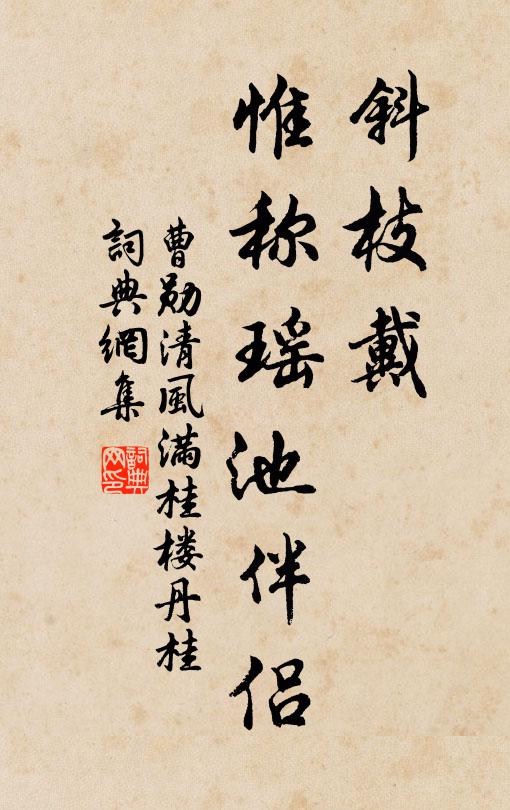 斜枝戴
惟称瑶池伴侣
曹勋清風满桂楼丹桂
詞典網集
詞典网印